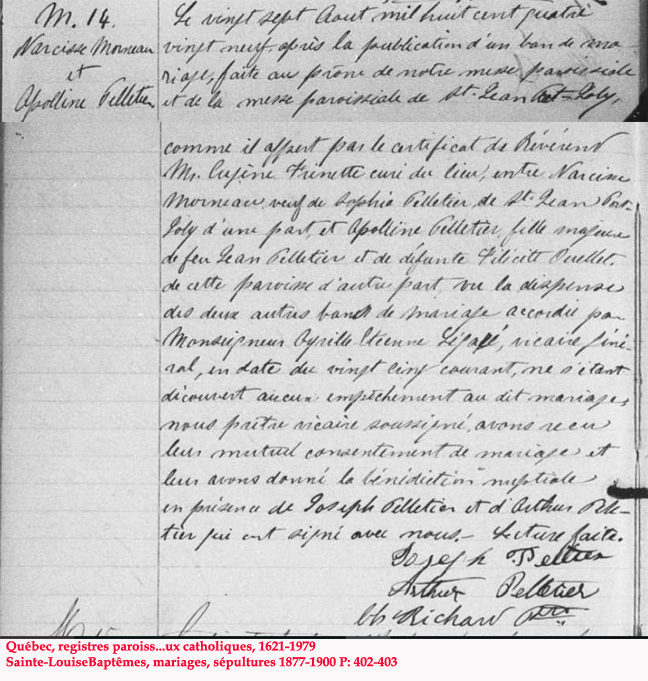 M. 14.
Narcisse Morneau
et
Apolline Pelletier
Le vingt sept Aout mil huit cent quatre
vingt neuf après la publication d'un ban de ma-
riage, faite au prône de notre messe paroissiale
et de la messe paroissiale de St. Jean Port-Joly,
comme il appert par le certificat de Révérend
Mr. Eugène Frenette curé du lieu, entre Narcisse
Morneau, veuf de Sophie Pelletier, de St. Jean Port-
Joly d'une part, et Apolline Pelletier, fille majeure
de feu Jean Pelletier et de défunte Félicité Ouellet,
de cette paroisse d'autre part, vu la dispense
des deux autres bans de mariage accordée par
Monseigneur Cyrille Etienne Légaré, vicaire géné-
ral, en date du vingt cinq courant, ne s'étant
découvert aucun empêchement au dit mariage,
nous prêtre vicaire soussigné, avons reçu
leur mutuel consentement de mariage et
leur avons donné la bénédiction nuptiale
en présence de Joseph Pelletier et d'Arthur Pel-
tier qui ont signé avec nous. - Lecture faite.
Joseph Peltier
Arthur Pelletier
Richard Ptre
Québec, registres paroiss...ux catholiques, 1621-1979
Sainte-LouiseBaptêmes, mariages, sépultures 1877-1900 P: 402-403